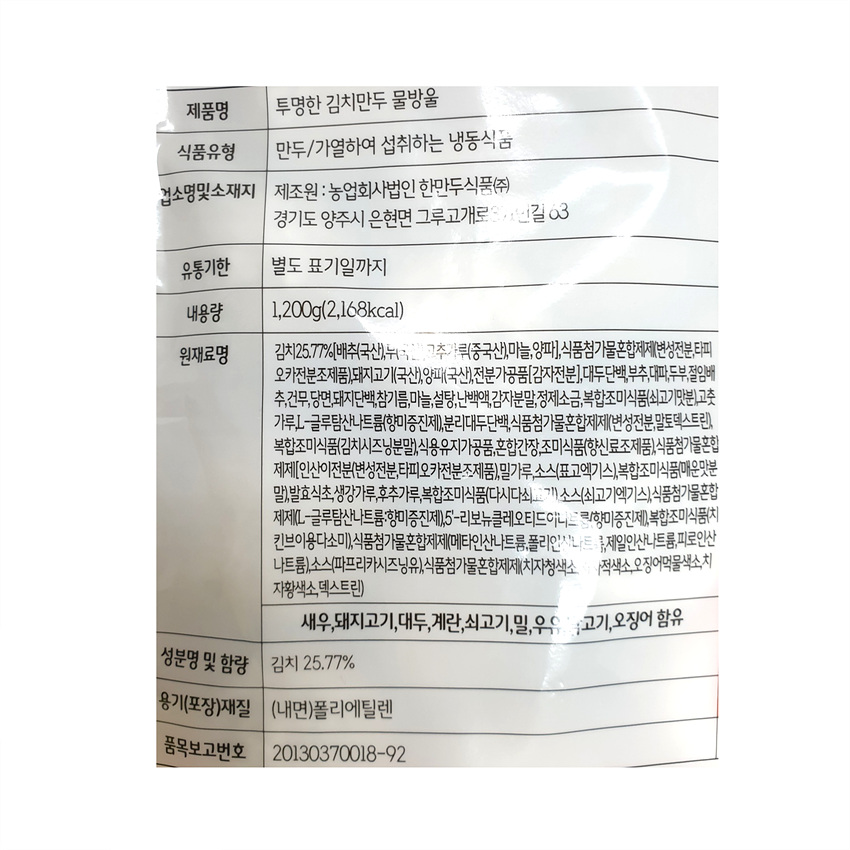 제품명 투명한 김치만두 물방울
식품유형 만두/가열하여 섭취하는 냉동식품
업소명및소재지 제조원 : 농업회사법인 한만두식품㈜
경기도 양주시 은현면 63
유통기한 별도 표기일까지
내용량 1,200g(2,168kcal)
원재료명 김치25.77%[배추(국산),고추가루(중국산),마늘,양파],식품첨가물혼합제제(변성전분,타피
오카전분조제품),돼지고기(국산),양파(국산),전분가공품[감자전분],대두단백,부추,대파,두부,절임배
추,건무,당면,돼지단백,참기름,마늘,설탕,난백액,감자분말,정제소금,복합조미식품(쇠고기맛분),고춧
가루,L-글루탐산나트륨(향미증진제),분리대두단백,식품첨가물혼합제제(변성전분,말토덱스트린),
복합조미식품(김치시즈닝분말),식용유지가공품,혼합간장,조미식품(향신료조제품),식품첨가물혼합
제제[인산이전분(변성전분,타피오카전분조제품),밀가루,소스(표고엑기스),복합조미식품(매운맛분
말),발효식초,생강가루,후추가루,복합조미식품(다시다쇠고기)소스(쇠고기엑기스),식품첨가물혼합
제제(L-글루탐산나트륨:향미증진제),5'-리보뉴클레오티드이나트륨(향미증진제),복합조미식품(치
킨브이용다소미),식품첨가물혼합제제(메타인산나트륨,폴리인산나트륨,제일인산나트륨,피로인산
나트륨),소스(파프리카시즈닝유),식품첨가물혼합제제(치자청색소,적색소,오징어먹물색소,치
자황색소,덱스트린)
새우,돼지고기,대두,계란,쇠고기,밀,우유,닭고기,오징어 함유
성분명 및 함량 김치 25.77%
용기(포장)재질 (내면)폴리에틸렌
품목보고번호 20130370018-92